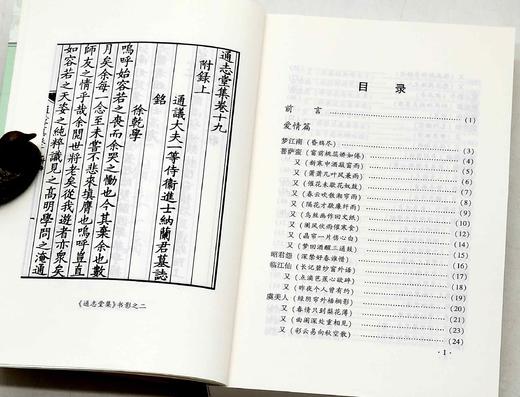 通志堂集卷十九
附錄上
通議大夫一等侍衛進士納蘭君墓誌
銘
徐乾學
嗚呼始容若之喪而余哭之慟也今其棄余也數
月矣余每一念至未嘗不悲來填膺也嗚呼豈直
師友之情乎哉余閱世將老矣從我遊者亦眾矣
如容若之天姿之純粹識見之高明學問之淹通
《通志堂集》书影之二
目录
前言 (1)
爱情篇
梦江南(昏鸦尽) (3)
菩萨蛮(窗前桃蕊娇如倦) (4)
又(新寒中酒敲窗雨) (5)
又(萧萧几叶风兼雨) (6)
又(催花未歇花奴鼓) (7)
又(春云吹散湘帘雨) (8)
又(隔花才歇廉纤雨) (9)
又(乌丝画作回文纸) (10)
又(阑风伏雨催寒食) (11)
又(晶帘一片伤心白) (12)
又(梦回酒醒三通鼓) (13)
昭君怨(深禁好春谁惜) (14)
临江仙(长记碧纱窗外语) (16)
又(点滴芭蕉心欲碎) (17)
又(昨夜个人曾有约) (18)
虞美人(绿阴帘外梧桐影) (20)
又(春情只到梨花薄) (21)
又(曲阑深处重相见) (22)
又(彩云易向秋空散) (24)
·1·